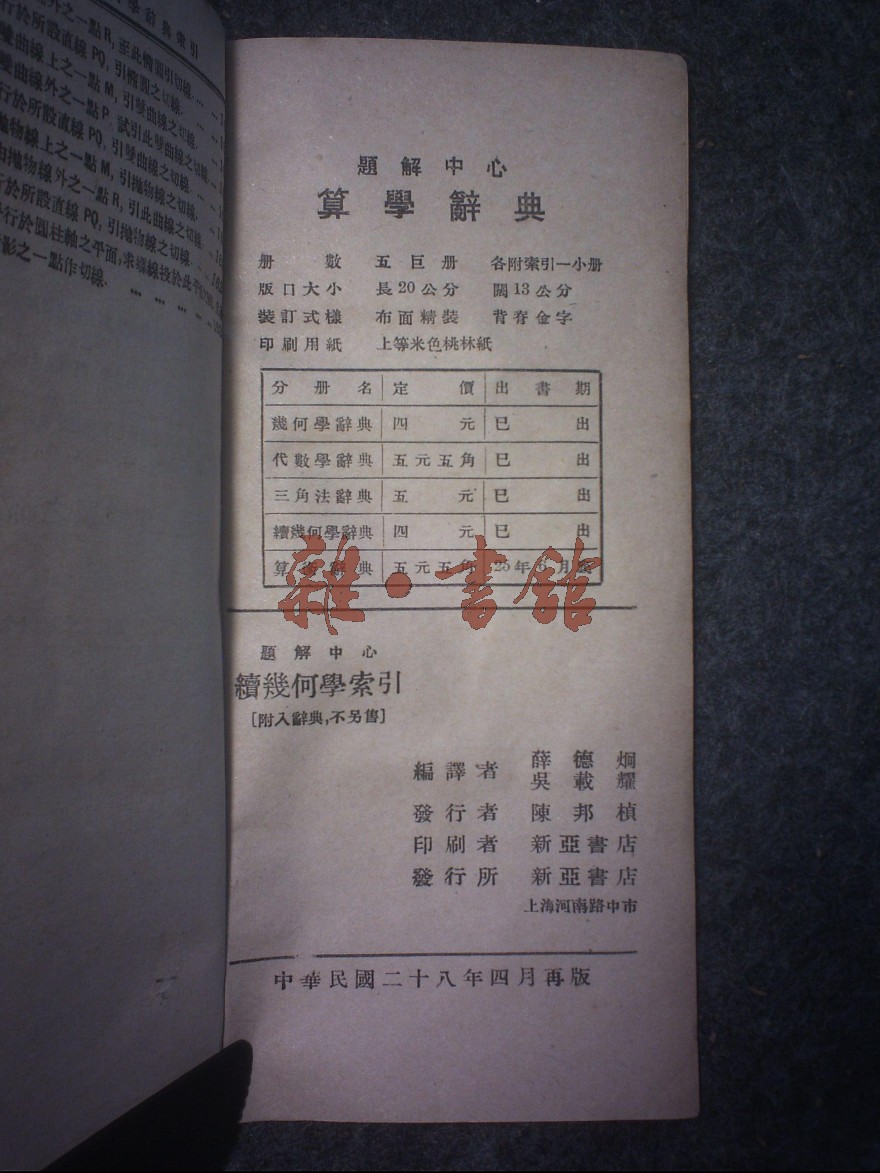 學辭典索引
外之一點R,至此橢圓引切線.
行於所設直線PQ,引橢圓之切線.
雙曲線上之一點M,引雙曲線之切線.
雙曲線外之一點P 試引此雙曲線之切線.
行於所設直線PQ,引雙曲線之切線.
拋物線上之一點M,引拋物線之切線.
由拋物線外之一點R,引此曲線之切線.
行於所設直線PQ,引拋物線之切線.
行於圓柱軸之平面,求導線投於此平
影之一點作切線.
題解中心
算學辭典
册數 五巨册 各附索引一小册
版口大小 長20公分 闊13公分
裝訂式樣 布面精裝 背脊金字
印刷用紙 上等米色桃林紙
分册名 定價 出書期
幾何學辭典 四元 已出
代數學辭典 五元五角 已出
三角法辭典 五元 已出
續幾何學辭典 四元 已出
算術辭典 五元五角 25年6月
雜·書館
題解中心
續幾何學索引
[附入辭典,不另售]
編譯者 薛德炯
吳載耀
發行者 陳邦楨
印刷者 新亞書店
發行所 新亞書店
上海河南路中市
中華民國二十八年四月再版